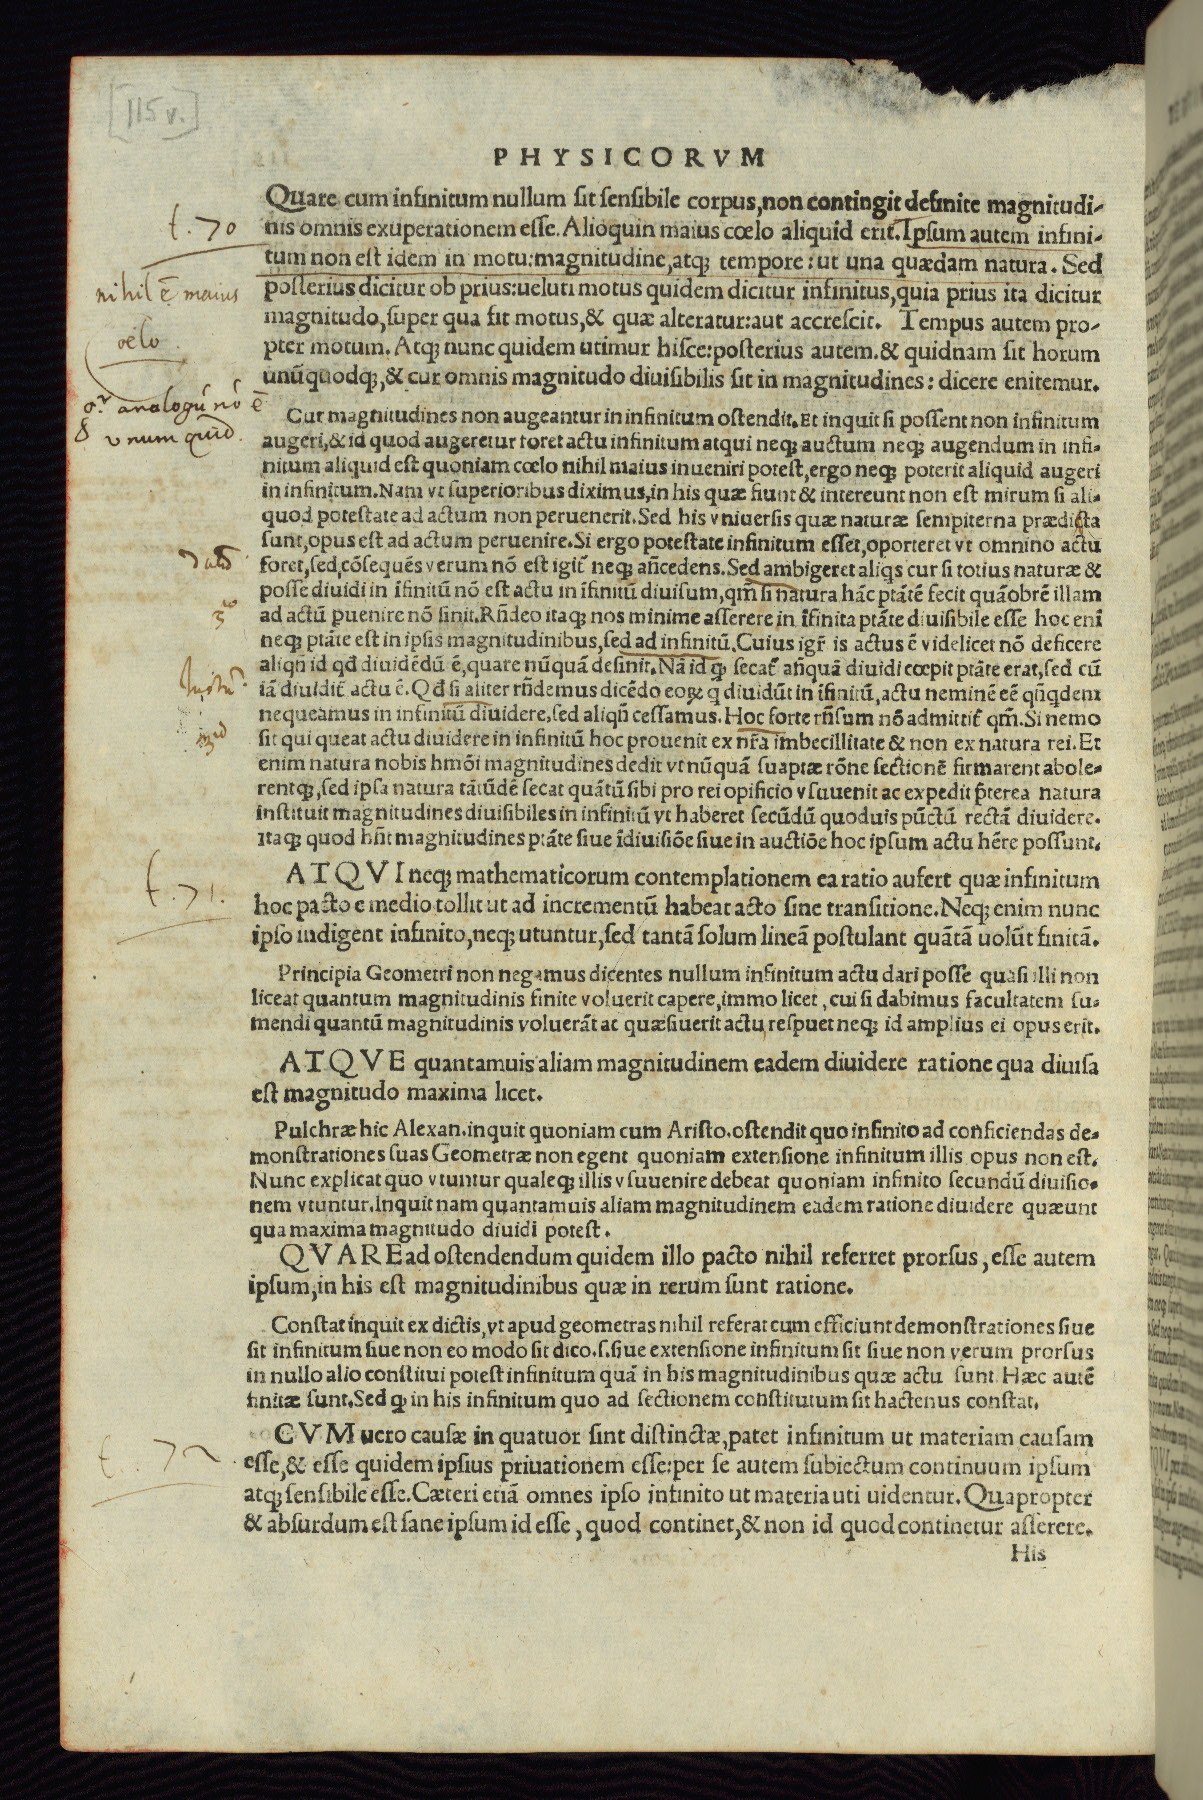 [115v.]
PHYSICORVM
Quare cum infinitum nullum sit sensibile corpus, non contingit definite magnitudi-
nis omnis exuperationem esse. Alioquin maius cœlo aliquid erit. Ipsum autem infini-
tum non est idem in motu: magnitudine, atqȝ tempore: ut una quædam natura. Sed
posterius dicitur ob prius: ueluti motus quidem dicitur infinitus, quia prius ita dicitur
magnitudo, super qua fit motus, & quæ alteratur: aut accrescit. Tempus autem pro-
pter motum. Atqȝ nunc quidem utimur hisce: posterius autem. & quidnam sit horum
unũquodqȝ, & cur omnis magnitudo diuisibilis sit in magnitudines: dicere enitemur.
t. 70
nihil ē maius
cœlo.
analogũ nō ē
vnum quid.
Cur magnitudines non augeantur in infinitum ostendit. Et inquit si possent non infinitum
augeri, & id quod augeretur foret actu infinitum atqui neqȝ auctum neqȝ augendum in infi-
nitum aliquid est quoniam cœlo nihil maius inueniri potest, ergo neqȝ poterit aliquid augeri
in infinitum. Nam vt superioribus diximus, in his quæ fiunt & intereunt non est mirum si ali-
quod potestate ad actum non peruenerit. Sed his vniuersis quæ naturæ sempiterna prædicta
sunt, opus est ad actum peruenire. Si ergo potestate infinitum esset, oporteret vt omnino actu
foret, sed cõsequẽs verum nõ est igit̃ neqȝ añcedens. Sed ambigeret aliqs cur si totius naturæ &
posse diuidi in ĩfinitũ nõ est actu in ĩfinitũ diuisum, qm̃ si natura hãc ptãtẽ fecit quãobrẽ illam
ad actũ puenire nõ sinit. Rñdeo itaqȝ nos minime asserere in ĩfinita ptãte diuisibile esse hoc enĩ
neqȝ ptãte est in ipsis magnitudinibus, sed ad infinitũ. Cuius igr̃ is actus ẽ videlicet nõ deficere
aliqñ id qđ diuidẽdũ ẽ, quare nũquã desinit. Nã id qȝ secat̃ añquã diuidi cœpit ptãte erat, sed cũ
iã diuidit̃ actu ẽ. Qđ si aliter rñdemus dicẽdo eoꝝ q diuidũt in ĩfinitũ, actu neminẽ eẽ qñqdem
nequeamus in infinitũ diuidere, sed aliqñ cessamus. Hoc forte rñsum nõ admittit̃ qm̃. Si nemo
sit qui queat actu diuidere in infinitũ hoc prouenit ex nr̃a imbecillitate & non ex natura rei. Et
enim natura nobis hmõi magnitudines dedit vt nũquã suaptæ rõne sectionẽ firmarent abole-
rentqȝ, sed ipsa natura tãtũdẽ secat quãtũ sibi pro rei opificio vsuuenit ac expedit p̃terea natura
instituit magnitudines diuisibiles in infinitũ vt haberet secũdũ quoduis pũctũ rectã diuidere.
Itaqȝ quod hñt magnitudines ptãte siue ĩdiuisiõe siue in auctiõe hoc ipsum actu hẽre possunt.
ATQVI neqȝ mathematicorum contemplationem ea ratio aufert quæ infinitum
hoc pacto e medio tollit ut ad incrementũ habeat acto sine transitione. Neqȝ enim nunc
ipso indigent infinito, neqȝ utuntur, sed tantã solum lineã postulant quãtã uolũt finitã.
t. 71.
Principia Geometri non negamus dicentes nullum infinitum actu dari posse quasi illi non
liceat quantum magnitudinis finite voluerit capere, immo licet, cui si dabimus facultatem su-
mendi quantũ magnitudinis voluerãt ac quæsiuerit actu respuet neqȝ id amplius ei opus erit.
ATQVE quantamuis aliam magnitudinem eadem diuidere ratione qua diuisa
est magnitudo maxima licet.
Pulchræ hic Alexan. inquit quoniam cum Aristo. ostendit quo infinito ad conficiendas de-
monstrationes suas Geometræ non egent quoniam extensione infinitum illis opus non est.
Nunc explicat quo vtuntur qualeqȝ illis vsuuenire debeat quoniam infinito secundũ diuisio-
nem vtuntur. Inquit nam quantamuis aliam magnitudinem eadem ratione diuidere quæunt
qua maxima magnitudo diuidi potest.
QVARE ad ostendendum quidem illo pacto nihil referret prorsus, esse autem
ipsum, in his est magnitudinibus quæ in rerum sunt ratione.
Constat inquit ex dictis, vt apud geometras nihil referat cum efficiunt demonstrationes siue
sit infinitum siue non eo modo sit dico. s. siue extensione infinitum sit siue non verum prorsus
in nullo alio constitui potest infinitum quã in his magnitudinibus quæ actu sunt. Hæc autẽ
finitæ sunt. Sed qȝ in his infinitum quo ad sectionem constitutum sit hactenus constat.
CVM uero causæ in quatuor sint distinctæ, patet infinitum ut materiam causam
esse, & esse quidem ipsius priuationem esse: per se autem subiectum continuum ipsum
atqȝ sensibile esse. Cæteri etiã omnes ipso infinito ut materia uti uidentur. Quapropter
& absurdum est sane ipsum id esse, quod continet, & non id quod continetur asserere.
t. 72.
His